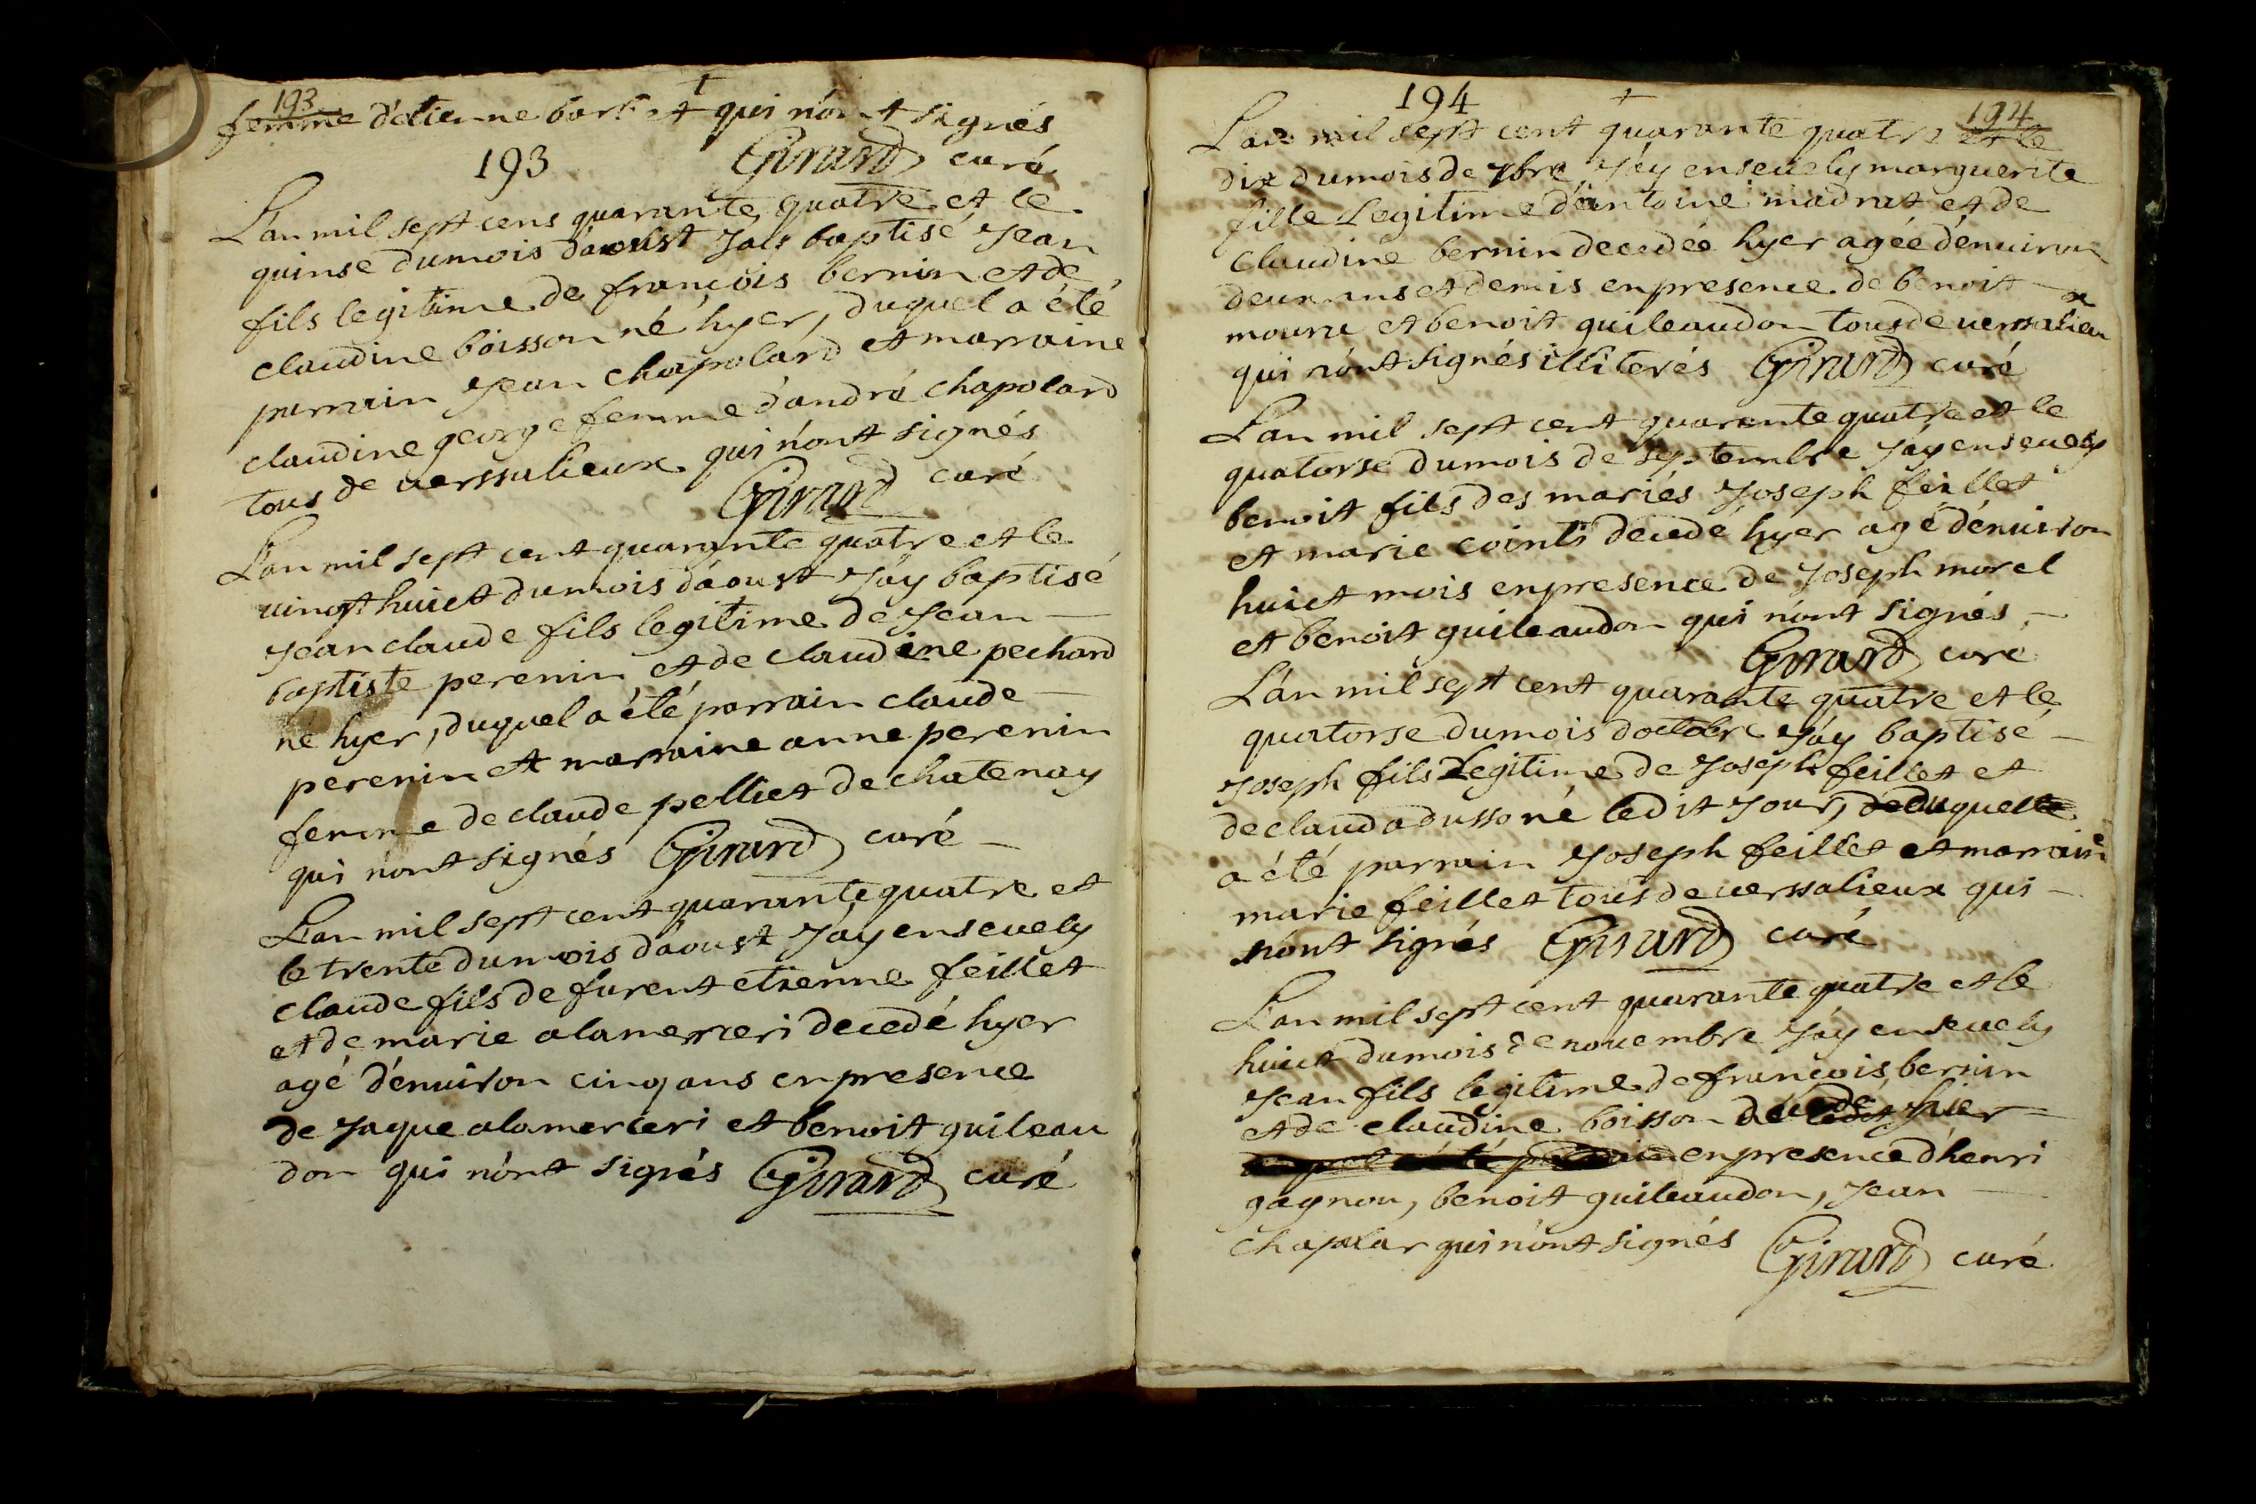 193
femme d'etienne qui n'ont signés
Girard curé
193
L'an mil sept cens quarante quatre et le
quinse du mois d'aoust Jay baptisé Jean
fils legitime de françois bernin et de
claudine boisson né hyer, duquel a été
parrain Jean chapolard et marraine
claudine george femme d'andré chapolard
tous de uerssalieux qui n'ont signés
Girard curé
L'an mil sept cent quarante quatre et le
uingt huict du mois d'aoust J'ay baptisé
Jean claude fils legitime de Jean
baptiste perenin et de claudine pechard
né hyer, duquel a été parrain claude
perenin et marraine anne perenin
femme de claude pelliet de chatenay
qui n'ont signés Girard curé
L'an mil sept cent quarante quatre et
le trente du mois d'aoust J'ay enseuely
claude fils de furent etienne feillet
et de marie alamerceri decedé hyer
agé d'enuiron cinq ans en presence
de Jaque alamerceri et benoit guileau
don qui n'ont signés Girard curé
194
194
L'an mil sept cent quarante quatre et le
dix du mois de 7bre J'ay enseuely marguerite
fille Legitime d'antoine madrat et de
claudine bernin decedée hyer agée d'enuiron
deux ans et demis en presence de benoit
et benoit guileaudon tous de uerssalieux
qui n'ont signés illiterés Girard curé
L'an mil sept cent quarente quatre et le
quatorse du mois de septembre J'ay enseuely
benoit fils des mariés Joseph feillet
et marie decedé hyer agé d'enuiron
huict mois en presence de Joseph morel
et benoit guileaudon qui n'ont signés
Girard curé
L'an mil sept cent quarante quatre et le
quatorse du mois d'octobre J'ay baptisé
Joseph fils Legitime de Joseph feillet et
de né ledit Jour, duquel
a été parrain Joseph feillet et marrain
marie feillet tous de uerssalieux qui
n'ont signés Girard curé
L'an mil sept cent quarante quatre et le
huict du mois de nouembre J'ay enseuely
Jean fils legitime de françois bernin
et de claudine boisson decedé hier
en presence d'henri
gagnou, benoit guileaudon, Jean
chapolar qui n'ont signés
Girard curé